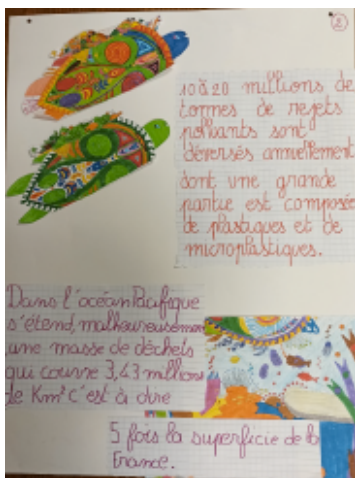 2
10 à 20 millions de
tonnes de rejets
polluants sont
déversés annuellement
dont une grande
partie est composée
de plastiques et de
microplastiques.
Dans l'océan Pacifique
s'étend, malheureusement
une masse de déchets
qui couvre 3,43 millions
de Km² c'est à dire
5 fois la superficie de la
France.